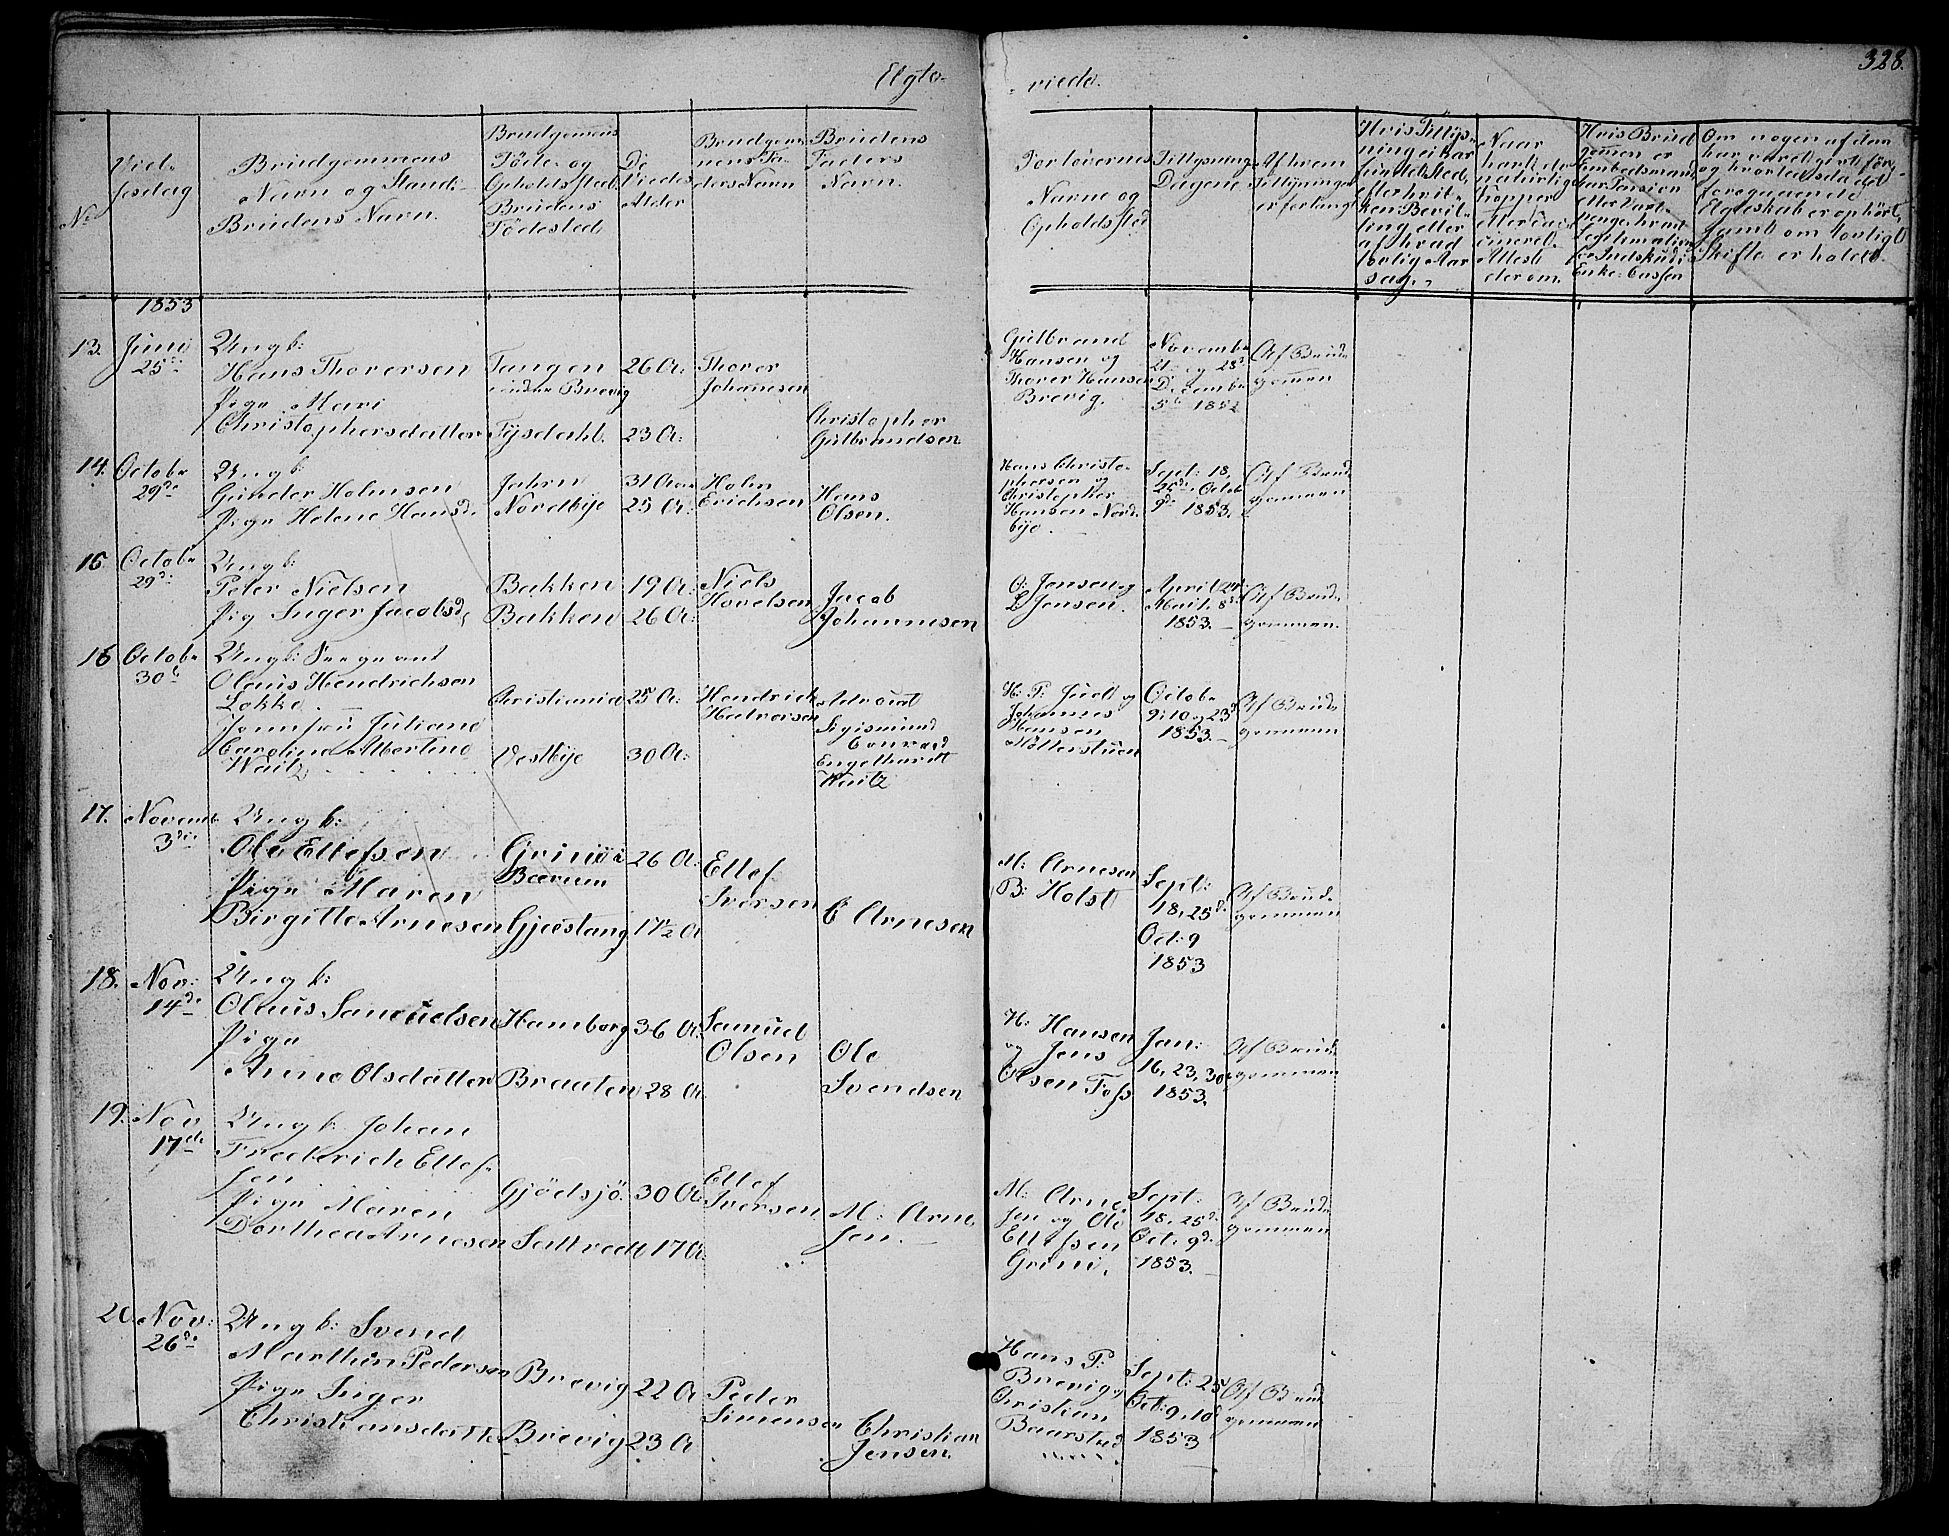 Egte-
viede.
328.
No
Viel-
sesdag
Brudgommens
Navn og Stand.
Brudens Navn.
Brudgomens
Føde- og
Opholdssted
Brudens
Fødested
De
Viedes
Alder
Brudgom-
mens Fa-
ders Navn
Brudens
Faders
Navn.
Forlovernes
Navne og
Opholdssted
Tillysnings
Dagene
Af hvem
Tillysningen
er forlangt
Hvis Tillys-
ning ei har
fundet Sted,
efter hvil-
ken Bevil-
ling eller
af hvad
lovlig Aar-
sag.
Naar
har de
naturlige
Kopper
eller vac-
cineret.
Attest
derom.
Hvis Brud
gomen er
Embedsmand
har Pension
eller Vart-
penge, hvad
Legitimation
for Indskud i
Enke-Cassen
Om nogen af dem
har været gift før,
og hvorledes da det
foregaaende
Egteskab er ophørt,
samt om lovligt
Skifte er holdt.
1853
13.
Juni
25de
Ungk:
Hans Thorersen
Pige Mari
Christophersdatter
Tangen
under Brevig
Fysdahl.
26 A:
23 A:
Thorer
Johanesen
Christopher
Gulbrandsen
Gulbrand
Hansen og
Thorer Hansen
Brevig.
November
21 og 28de
December
5te 1852
Af Brud-
gomen
14.
Octobr
29de
Ungk:
Gunder Holmsen
Pige Helene Hansd.
Jahrn
Nordbye
31 Aar
25 A:
Holm
Erichsen
Hans
Olsen.
Hans Christo-
phersen og
Christopher
Hansen Nord-
bye.
Sept: 18,
25de, Octob
9de 1853.
Af Brud-
gommen
15
Octobr
29de
Ungk:
Peter Nielsen
Pig Inger Jacobsd,
Bakken
Bakken
19 A:
26 A:
Niels
Hovelsen
Jacob
Johannesen
O: Jensen og
L Jensen.
April 24
Mai 1, 8de
1853.
Af Brud-
gommen.
16
Octobr
30te
Ungk: Sergeant
Olaus Hendrichsen
Løkke.
Jomfru Juliane
Caroline Albertine
Waitz
Christiania
Vestbye
25 A:
30 A:
Hendrich
Sigismund
Conrad
Engelhardt
Waitz
H: P: Juell og
Johannes
Hansen
October
9, 10 og 23de
1853.
Af Brud-
gommen
17.
Novemb.
3die
Ungk:
Ole Ellefsen
Pige Maren
Birgitte Arnesen
Grini i
Bærum
Gjeestang
26 A:
17½ A
Ellef
Iversen
C Arnesen
M: Arnesen
B: Holst
Sept:
18, 25de
Oct: 9
1853
Af Brud-
gommen
18.
Nov:
14de
Ungk:
Olaus Samuelsen
Pige
Anne Olsdatter
Hamborg
Braaten
36 A:
28 A.
Samuel
Olsen
Ole
Svendsen
H: Hansen
og Jens
Olsen Foss
Jan:
16, 23, 30
1853.
Af Brud-
gommen
19.
Nov
17de
Ungk: Johan
Frederich Ellef-
sen
Pige Maren
Dorthea Arnesen
Gjødsjø.
Sattredt
30 A:
17 A:
Ellef
Iversen
M: Arne-
sen.
M: Arne-
sen og Ole
Ellefsen
Grini.
Sept:
18, 25de
Oct: 9de
1853.
Af Brud-
gommen
20.
Nov:
26de
Ungk: Svend
Marthin Pedersen
Pige Inger
Christiansdatter
Brevig
Brevig
22 A
23 A
Peder
Simensen
Christian
Jensen.
Hans P:
Brevig og
Christian
Baarstad
Sept: 25
Oct: 9, 10
1853
Af Brud-
gommen